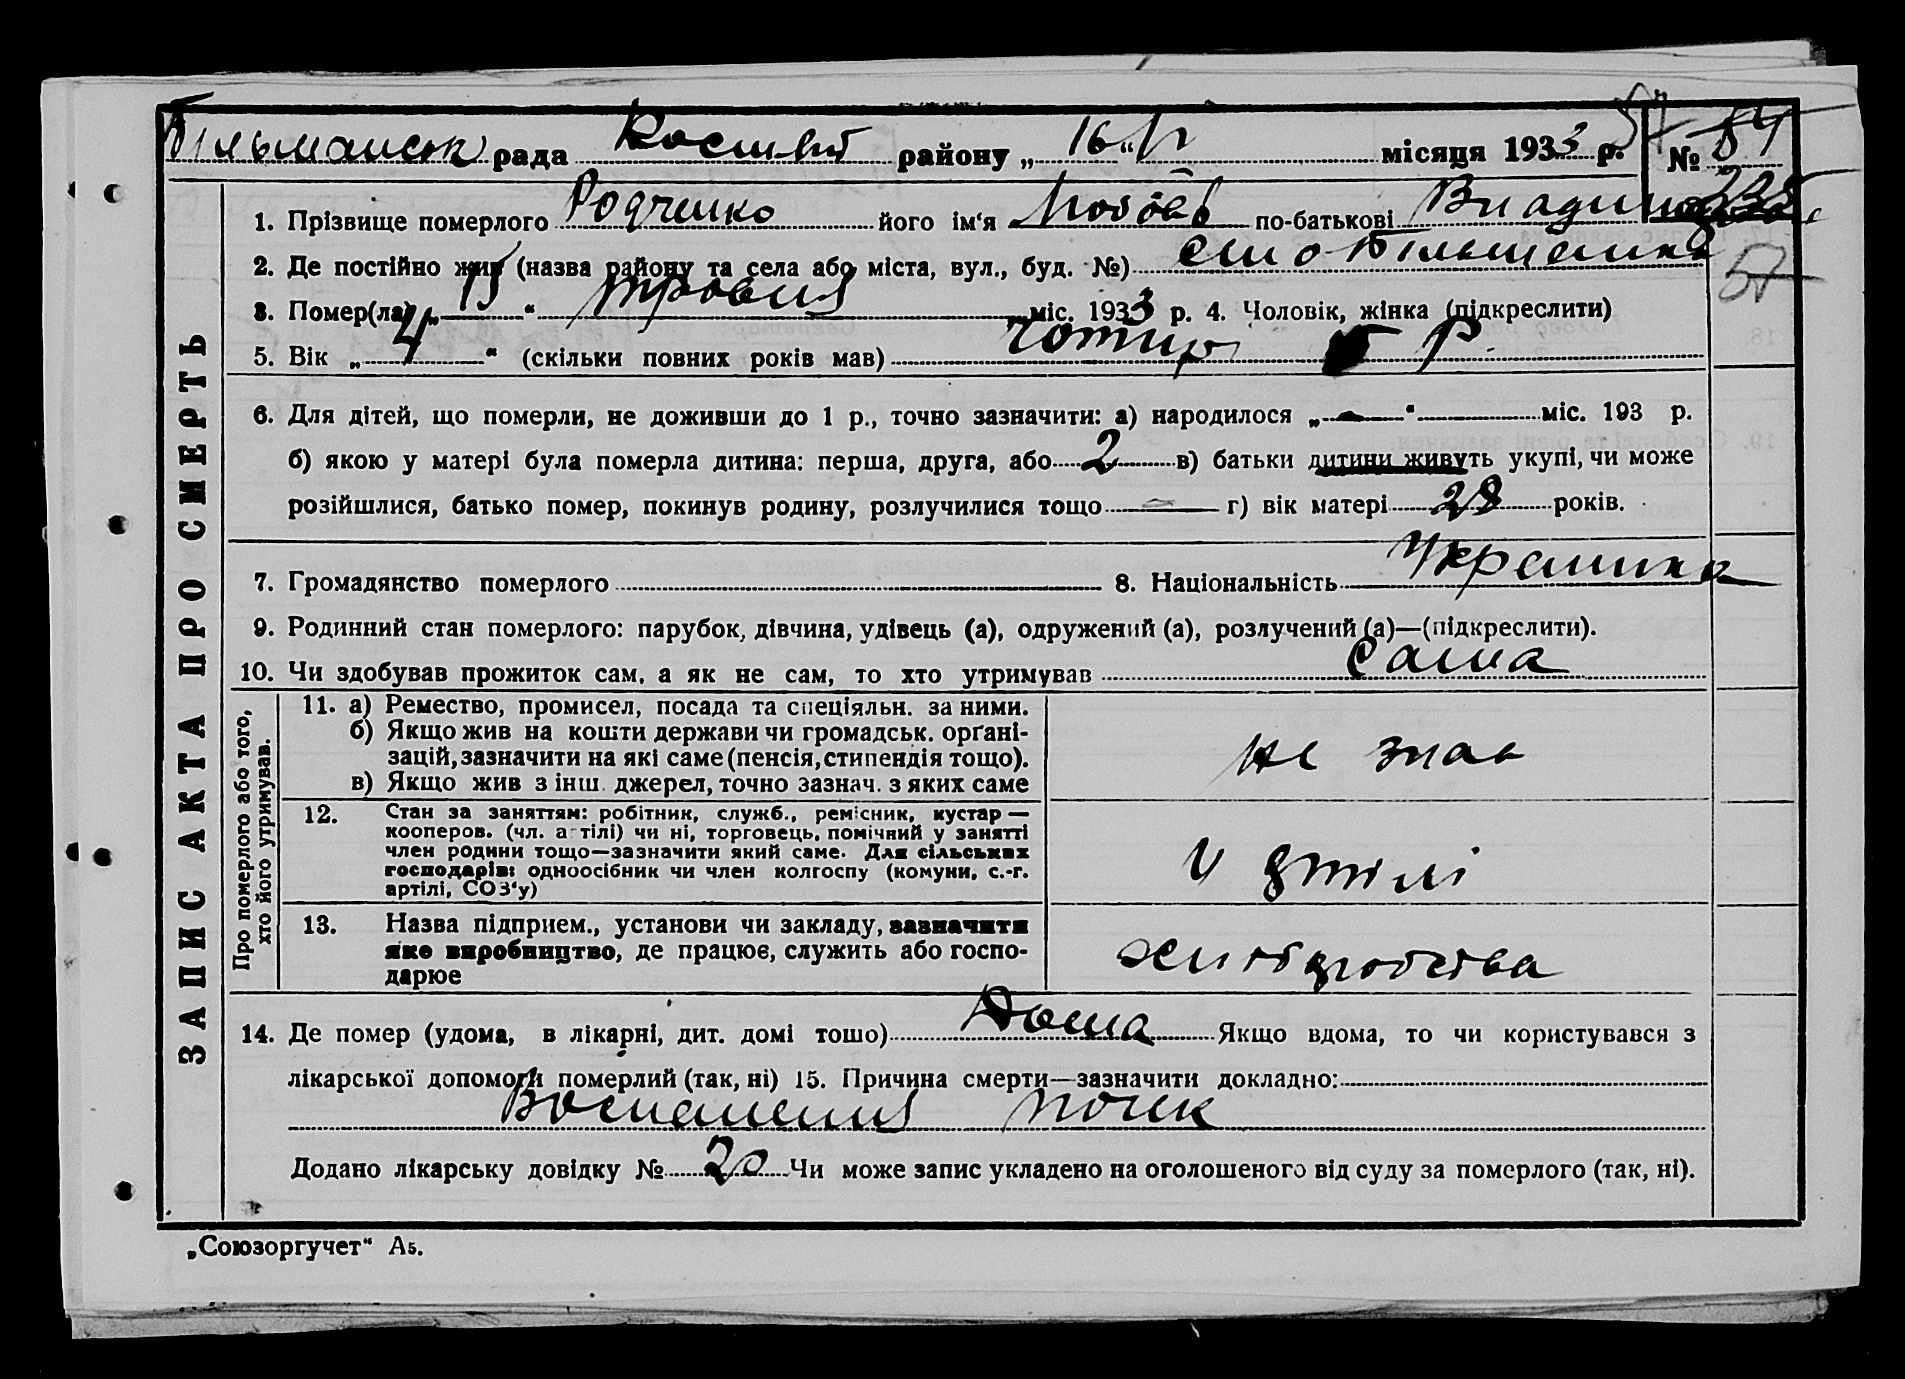 Більманськ рада район у „ 16 “ V місяця 1933 р. № 84
57
1. Прізвище померлого Родченко його ім‘я Любов по-батькові
2. Де постійно жив (назва району та села або міста, вул., буд. №) село Більманка
57
3. Помер(ла) „ 15 “ травня міс. 1933 р. 4. Чоловік, жінка (підкреслити)
5. Вік „ 4 “ (скільки повних років мав) чотири р.
6. Для дітей, що померли, не доживши до 1 р., точно зазначити: а) народилося „ — “ міс. 193 р.
б) якою у матері була померла дитина: перша, друга, або 2 в) батьки дитини живуть укупі, чи може
розійшлися, батько помер, покинув родину, розлучилися тощо — г) вік матері 28 років.
7. Громадянство померлого 8. Національність Українка
9. Родинний стан померлого: парубок, дівчина, удівець (а), одружений (а), розлучений (а)—(підкреслити).
10. Чи здобував прожиток сам, а як не сам, то хто утримував
ЗАПИС АКТА ПРО СМЕРТЬ
Про померлого або того,
хто його утримував.
11. а) Ремество, промисел, посада та спеціяльн. за ними.
б) Якщо жив на кошти держави чи громадськ. орґані-
зацій, зазначити на які саме (пенсія, стипендія тощо).
в) Якщо жив з інш. джерел, точно зазнач. з яких саме
не знав
12. Стан за заняттям: робітник, служб., ремісник, кустар—
кооперов. (чл. артілі) чи ні, торговець, помічний у занятті
член родини тощо—зазначити який саме. Для сільських
господарів: одноосібник чи член колгоспу (комуни, с.-г.
артілі, СОЗ‘у)
у артілі
13. Назва підприєм., установи чи закладу, зазначити
яке виробництво, де працює, служить або госпо-
дарює
14. Де помер (удома, в лікарні, дит. домі тошо) Дома Якщо вдома, то чи користувався з
лікарської допомоги померлий (так, ні) 15. Причина смерти—зазначити докладно:
Воспаления почек
Додано лікарську довідку № 20 Чи може запис укладено на оголошеного від суду за померлого (так, ні).
„Союзоргучет“ А5.